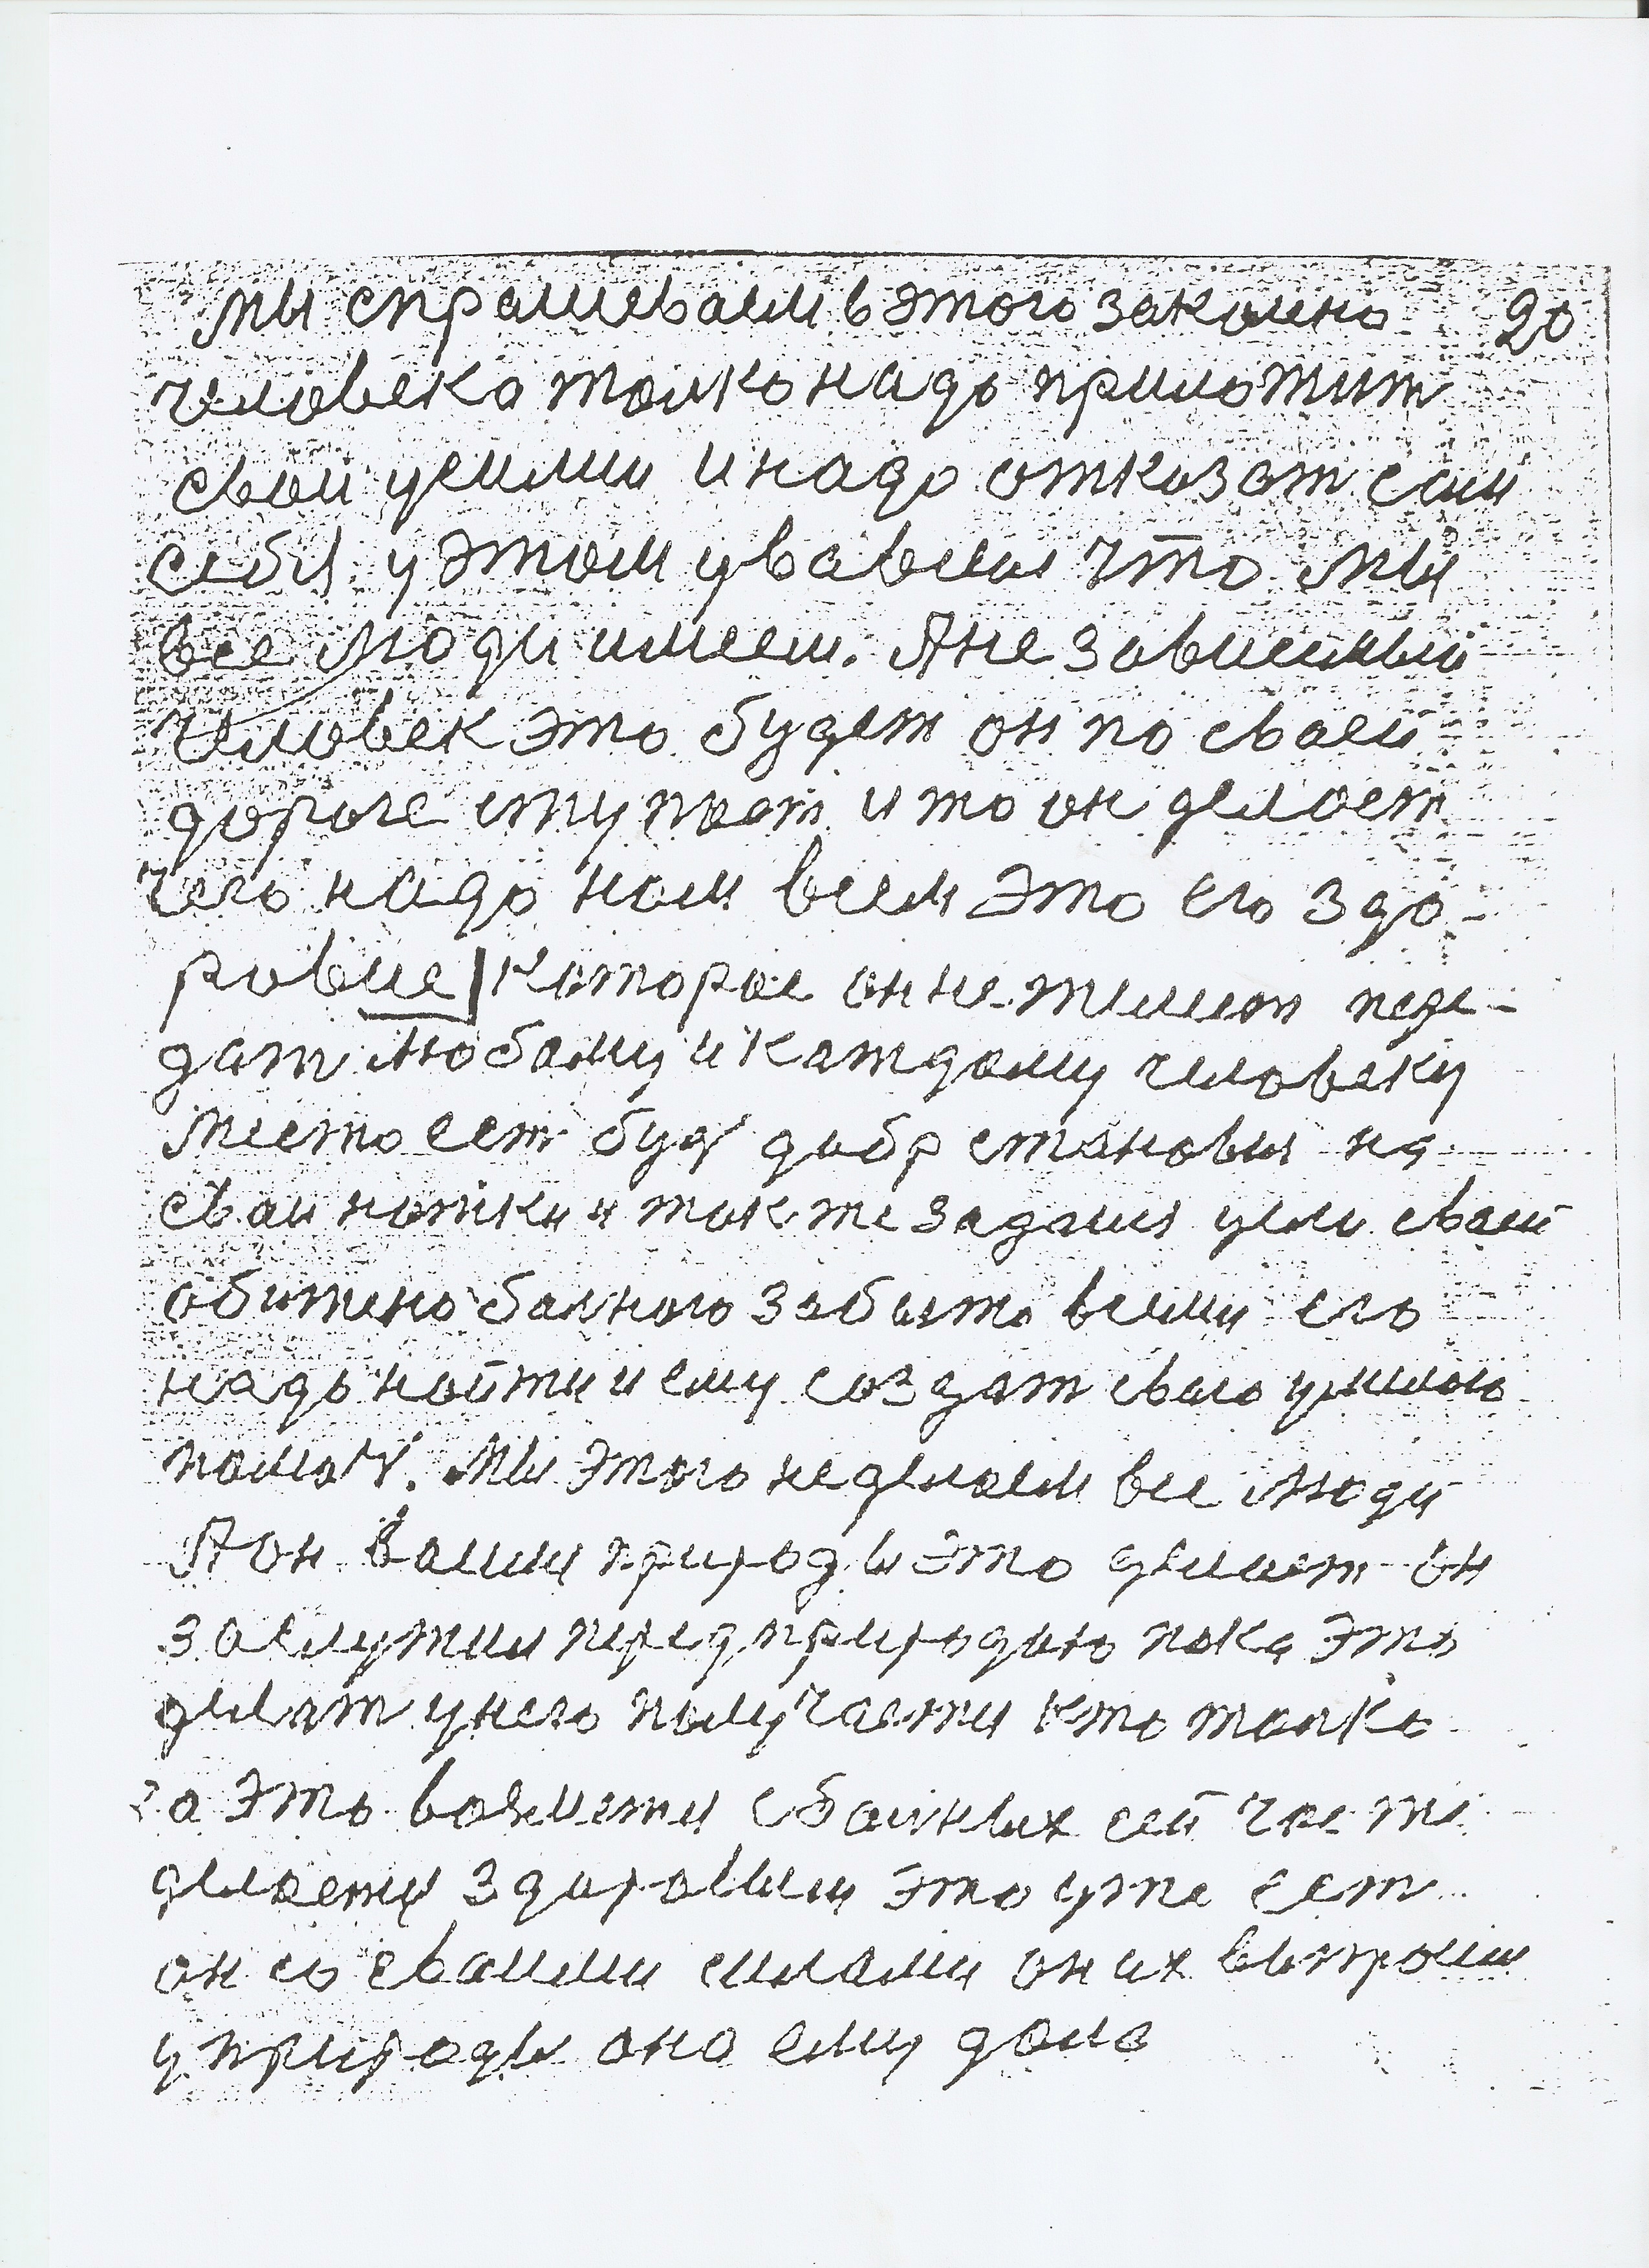 мы спрашеваем в этого законно 20
человека толко надо приложит
свои усилии и надо отказат сам
себя у этом увавиши что мы
все люди имеем. А независимый
человек это будет он по своей
дороге ступает и то он делает
чего надо нам всем это его здо-
ровие которое он не жилает пере-
дат любому и каждому человеку
место ест будь добр становис на
сваи ножки и также задайся целю сваей
обижено болного забыто всеми его
надо найти и ему создат сваю
помоч. Мы этого не делаем все люди
А он вашии природы это делает он
заслужил перед природою пока это
делат у него получаетси кто толко
за это возметси с болных сей час же
делаетси здоровим это уже ест
он со сваими силами он их выпросил
у природы оно ему дало